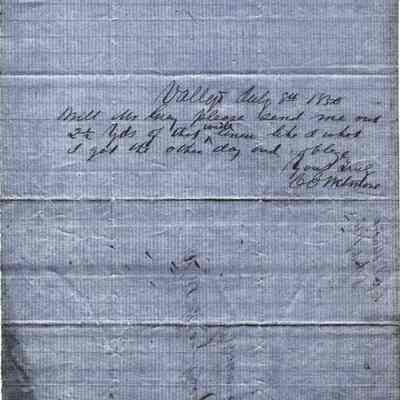 Valley July 8th
Will Mr Gray please send me out
2½ Yds of that wide linen like I what
I got the other day and oblige
Yours truly